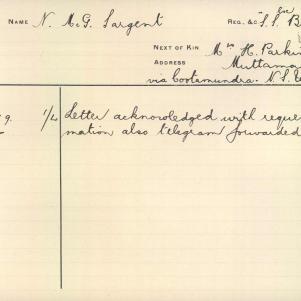 NAME N. McG. Sargent REG. &C "S.S.
NEXT OF KIN Mrs H. Parki
ADDRESS Muttama
via Cootamundra. N.S.W
9. 1/4 Letter acknowledged with reque
mation also telegram forwarded